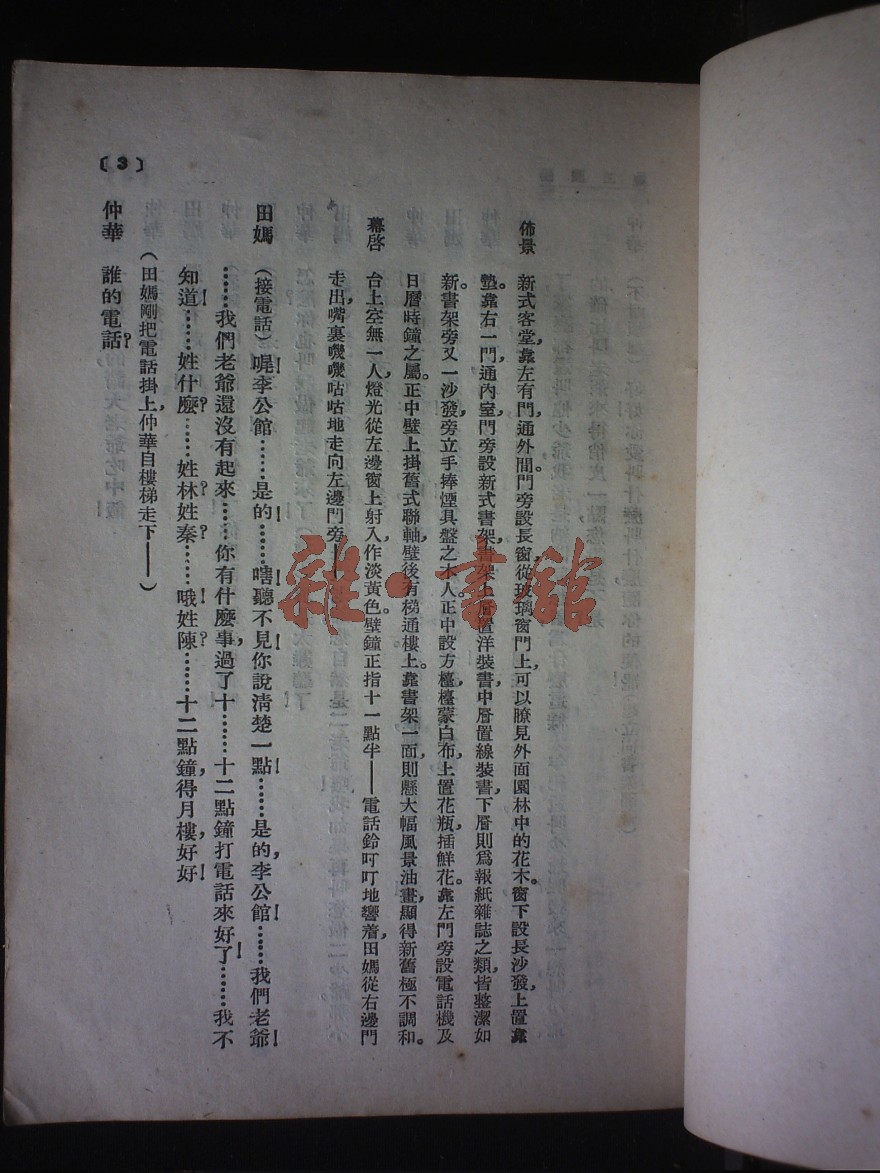 佈景 新式客堂,靠左有門,通外間。門旁設長窗,從玻璃窗門上,可以瞭見外面園林中的花木。窗下設長沙發,上置靠
墊。靠右一門,通內室,門旁設新式書架,書架上層置洋裝書,中層置線裝書,下層則爲報紙雜誌之類,皆整潔如
新。書架旁又一沙發,旁立手捧煙具盤之木人。正中設方檯,檯蒙白布,上置花瓶,插鮮花。靠左門旁設電話機及
日曆時鐘之屬。正中壁上掛舊式聯軸,壁後有梯通樓上。靠書架一面,則懸大幅風景油畫,顯得新舊極不調和。
幕啓 台上空無一人,燈光從左邊窗上射入,作淡黃色。壁鐘正指十一點半——電話鈴叮叮地響着,田媽從右邊門
走出,嘴裏嘰嘰咕咕地走向左邊門旁——
田媽 (接電話)喂!李公館……是的……嗐!聽不見你說清楚一點!……是的,李公館!……我們老爺
……我們老爺還沒有起來……你有什麼事,過了十……十二點鐘打電話來好了!……我不
知道!……姓什麼?……姓林?姓秦?……哦!姓陳?……十二點鐘,得月樓,好好!
(田媽剛把電話掛上,仲華自樓梯走下——)
仲華 誰的電話?
〔3〕
雜·書館